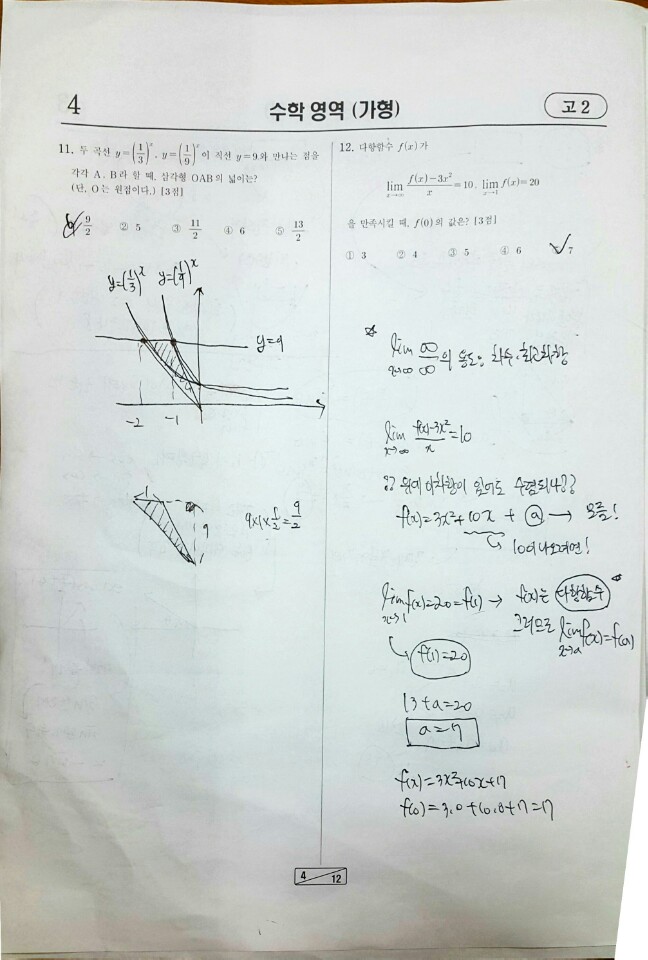 4
수학 영역 (가형)
고 2
11. 두 곡선 y=(1/3)^x, y=(1/9)^x 이 직선 y=9와 만나는 점을
각각 A, B라 할 때, 삼각형 OAB의 넓이는?
(단, O는 원점이다.) [3점]
9/2 ② 5 ③ 11/2 ④ 6 ⑤ 13/2
y=(1/3)^x y=(1/9)^x
y=9
-2 -1
1
9
9×1×1/2=9/2
12. 다항함수 f(x)가
lim x→∞ (f(x)-3x²)/x = 10, lim x→1 f(x)=20
을 만족시킬 때, f(0)의 값은? [3점]
① 3 ② 4 ③ 5 ④ 6 7
lim x→∞ ∞/∞ 의 용도: 차수, 최고차항
lim x→∞ (f(x)-3x²)/x =10
위에 이차항이 있어도 수렴되나??
f(x)=3x²+10x + a → 모름!
10이 나오려면!
lim x→1 f(x)=20=f(1) → f(x)는 다항함수
그러므로 lim x→a f(x)=f(a)
f(1)=20
13+a=20
a=7
f(x)=3x²+10x+7
f(0)=3.0+10.0+7=7
4 12